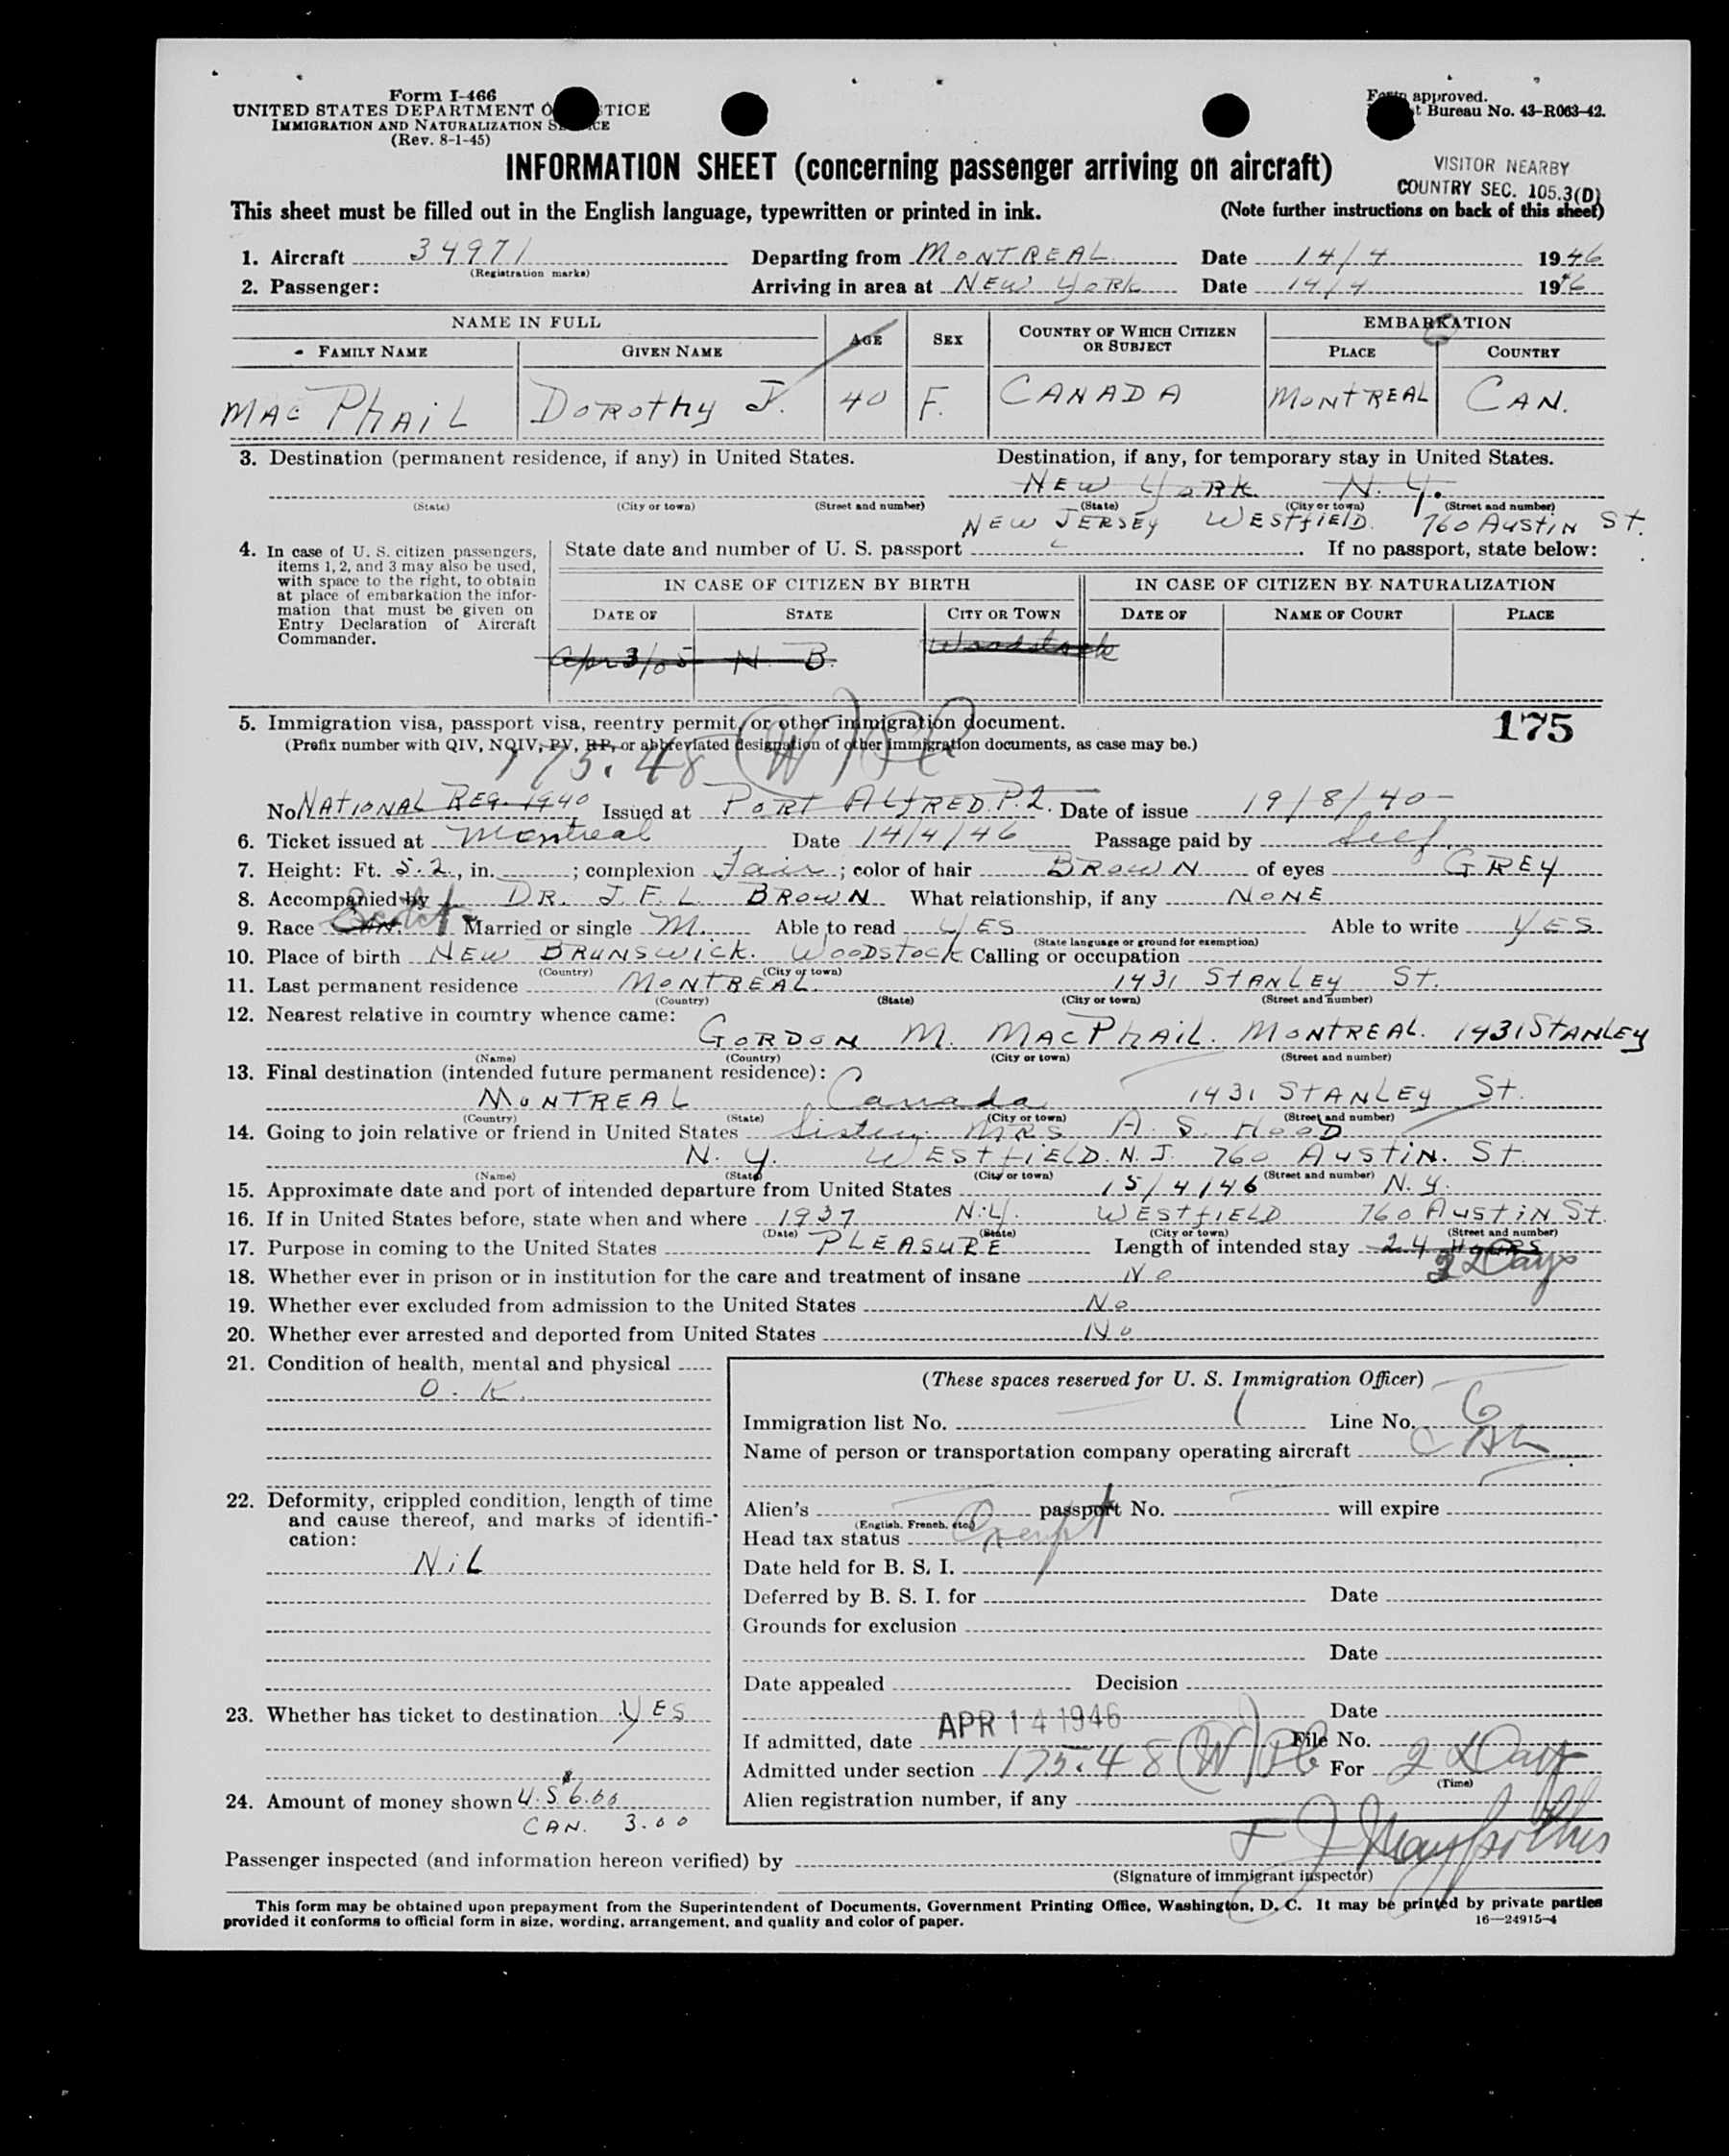 Form I-466
UNITED STATES DEPARTMENT O TICE
IMMIGRATION AND NATURALIZATION S CE
(Rev. 8-1-45)
Form approved.
t Bureau No. 43-R063-42.
INFORMATION SHEET (concerning passenger arriving on aircraft)
VISITOR NEARBY
COUNTRY SEC. 105.3(D)
This sheet must be filled out in the English language, typewritten or printed in ink. (Note further instructions on back of this sheet)
1. Aircraft 34971 Departing from MONTREAL Date 14/4 1946
(Registration marks)
2. Passenger: Arriving in area at NEW YORK Date 14/4 1946
NAME IN FULL AGE SEX COUNTRY OF WHICH CITIZEN OR SUBJECT EMBARKATION
FAMILY NAME GIVEN NAME PLACE COUNTRY
MAC PHAIL DOROTHY J. 40 F. CANADA MONTREAL CAN.
3. Destination (permanent residence, if any) in United States. Destination, if any, for temporary stay in United States.
NEW YORK N.Y.
(State) (City or town) (Street and number) (State) (City or town) (Street and number)
NEW JERSEY WESTFIELD 760 AUSTIN ST.
4. In case of U. S. citizen passengers, items 1, 2, and 3 may also be used, with space to the right, to obtain at place of embarkation the information that must be given on Entry Declaration of Aircraft Commander.
State date and number of U. S. passport If no passport, state below:
IN CASE OF CITIZEN BY BIRTH IN CASE OF CITIZEN BY NATURALIZATION
DATE OF STATE CITY OR TOWN DATE OF NAME OF COURT PLACE
Apr 3/05 N. B. Woodstock
5. Immigration visa, passport visa, reentry permit, or other immigration document. 175
(Prefix number with QIV, NQIV, PV, RP, or abbreviated designation of other immigration documents, as case may be.)
175.48 (W)
No. NATIONAL REG. 1940 Issued at PORT ALFRED P.Q. Date of issue 19/8/40
6. Ticket issued at Montreal Date 14/4/46 Passage paid by Self
7. Height: Ft. 5.2, in. ; complexion Fair ; color of hair BROWN of eyes GREY
8. Accompanied by DR. J. F. L. BROWN What relationship, if any NONE
9. Race CAN. Scotch Married or single M. Able to read YES Able to write YES
(State language or ground for exemption)
10. Place of birth NEW BRUNSWICK. WOODSTOCK Calling or occupation
(Country) (City or town)
11. Last permanent residence MONTREAL. 1431 STANLEY ST.
(Country) (State) (City or town) (Street and number)
12. Nearest relative in country whence came:
GORDON M. MACPHAIL. MONTREAL. 1431 STANLEY
(Name) (Country) (City or town) (Street and number)
13. Final destination (intended future permanent residence):
MONTREAL Canada 1431 STANLEY ST.
(Country) (State) (City or town) (Street and number)
14. Going to join relative or friend in United States Sister MRS A. S. HOOD
N. Y. WESTFIELD. N. J. 760 AUSTIN. ST.
(Name) (State) (City or town) (Street and number)
15. Approximate date and port of intended departure from United States 15/4/46 N.Y.
16. If in United States before, state when and where 1937 N.Y. WESTFIELD 760 AUSTIN ST.
(Date) (State) (City or town) (Street and number)
17. Purpose in coming to the United States PLEASURE Length of intended stay 24 HOURS
2 Days
18. Whether ever in prison or in institution for the care and treatment of insane No
19. Whether ever excluded from admission to the United States No
20. Whether ever arrested and deported from United States No
21. Condition of health, mental and physical
O. K.
22. Deformity, crippled condition, length of time and cause thereof, and marks of identification:
NIL
23. Whether has ticket to destination YES
24. Amount of money shown U.S. $6.00
CAN. 3.00
(These spaces reserved for U. S. Immigration Officer)
Immigration list No. 1 Line No. 6
Name of person or transportation company operating aircraft
Alien's passport No. will expire
(English, French, etc.)
Head tax status Exempt
Date held for B. S. I.
Deferred by B. S. I. for Date
Grounds for exclusion
Date
Date appealed Decision
Date
If admitted, date APR 14 1946 File No.
Admitted under section 175.48 (W) For 2 Days
(Time)
Alien registration number, if any
Passenger inspected (and information hereon verified) by
(Signature of immigrant inspector)
This form may be obtained upon prepayment from the Superintendent of Documents, Government Printing Office, Washington, D. C. It may be printed by private parties
provided it conforms to official form in size, wording, arrangement, and quality and color of paper. 16—24915-4